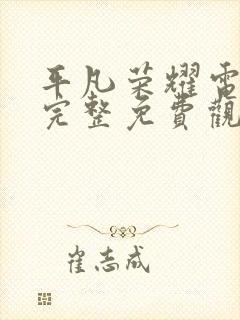 平凡榮耀電
完整免費觀
崔志成